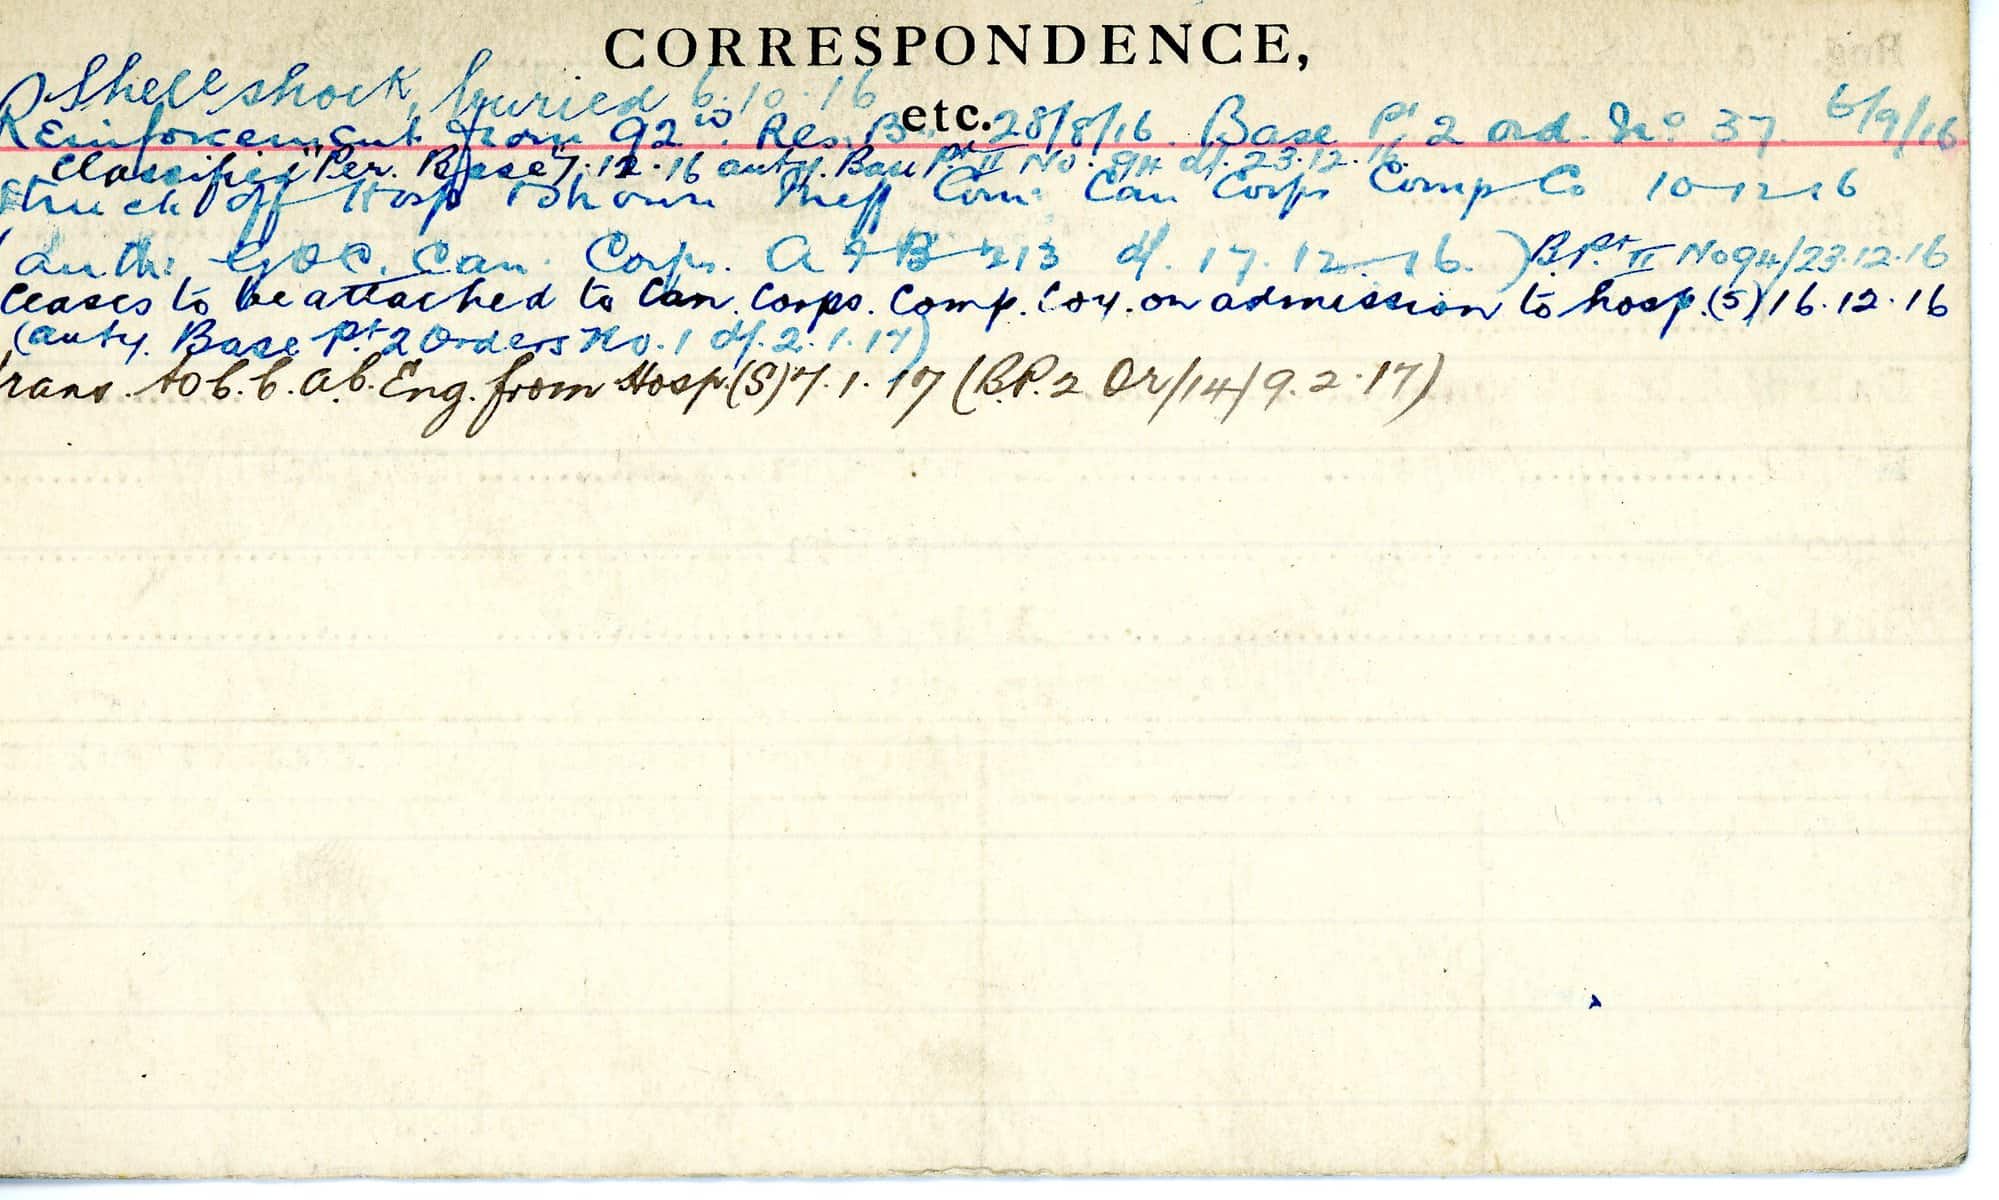 CORRESPONDENCE,
etc.
Shell shock, buried 6.10.16
Reinforcement from 92nd. Res. Bn. 28/8/16. Base Pt 2 ord. No 37. 6/9/16
Classified "Per. Base" 7.12.16 auty. Base Pt II No. 94 d/. 23.12.16
Struck off Hosp & shown Can Corps Comp Co 10-12-16
(Auth: GOC. Can. Corps. A & B 213 d/. 17.12.16.) B.Pt II No 94/23.12.16
Ceases to be attached to Can. Corps. Comp. Coy. on admission to hosp. (S) 16.12.16
(auty. Base Pt 2 Orders No. 1 d/. 2.1.17)
Trans. to C.C.A.C. Eng. from Hosp. (S) 7.1.17 (B.P. 2 Or/14/9.2.17)